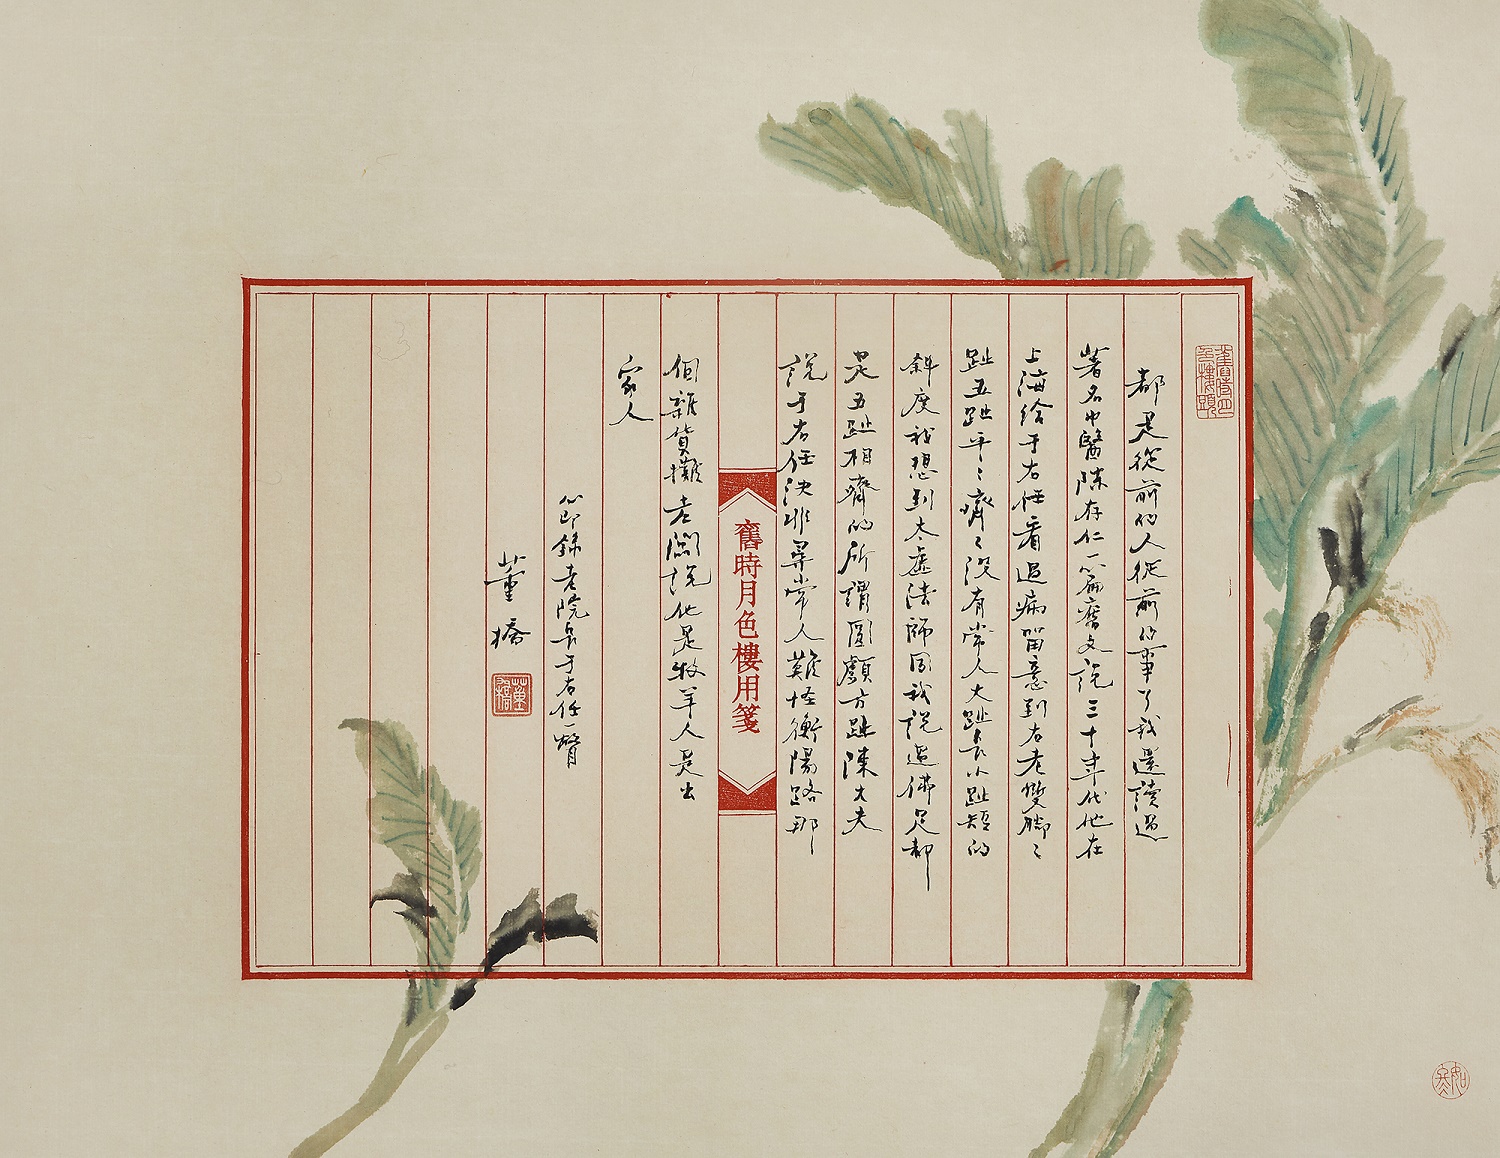 都是從前的人從前的事了我還讀過
著名中醫陳存仁一篇舊文說三十年代他在
上海給于右任看過病留意到右老雙腳〻
趾五趾平〻齊〻沒有常人大趾長小趾短的
斜度我想到太虛法師同我說過佛足都
是五趾相齊的所謂圓顱方趾陳大夫
說于右任決非尋常人難怪衡陽路那
個雜貨攤老闆說他是牧羊人是出
家人
節錄老院長于右任一瞥
董橋
董橋
舊時月色樓用箋